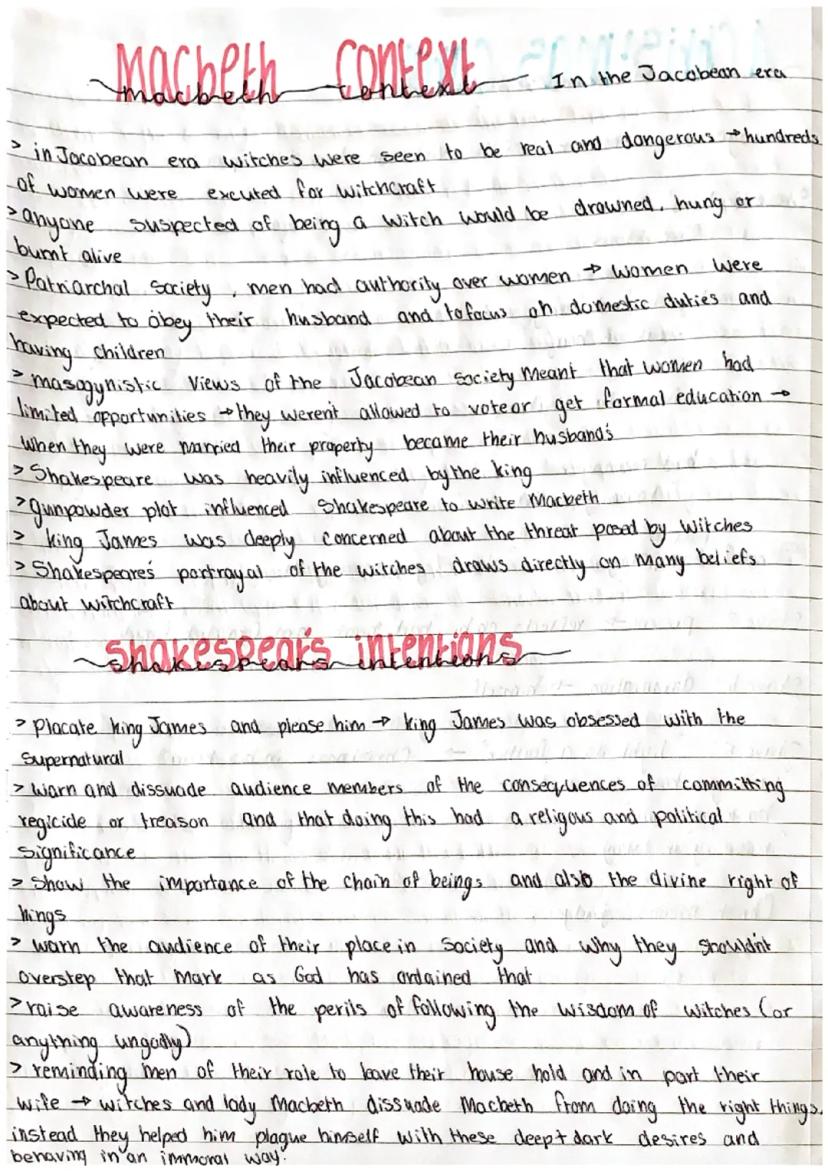 Macbeth Context
macbeth context
In the Jacobean era
> in Jacobean era witches were seen to be real and dangerous → hundreds
of women were excuted for witchcraft
> anyone suspected of being a witch would be drowned, hung or
burnt alive
> Patriarchal society, men had authority over women → women were
expected to obey their husband and to focus on domestic duties and
having children
> masogynistic views of the Jacobean society meant that women had
limited opportunities → they weren't allowed to vote or get formal education →
when they were married their property became their husband's
> Shakespeare was heavily influenced by the king
> gunpowder plot influenced Shakespeare to write Macbeth
> king James was deeply concerned about the threat posed by witches
> Shakespeare's portrayal of the witches draws directly on many beliefs
about witchcraft
shakespear's intentions
shakespear's intentions
> Placate king James and please him → king James was obsessed with the
supernatural
> warn and dissuade audience members of the consequences of committing
regicide or treason and that doing this had a religous and political
significance
> show the importance of the chain of beings and also the divine right of
kings
> warn the audience of their place in society and why they shouldn't
overstep that mark as God has ordained that
> raise awareness of the perils of following the wisdom of witches (or
anything ungodly)
> reminding men of their role to leave their house hold and in part their
wife → witches and lady Macbeth dissuade Macbeth from doing the right things,
instead they helped him plague himself with these deep + dark desires and
behaving in an immoral way.